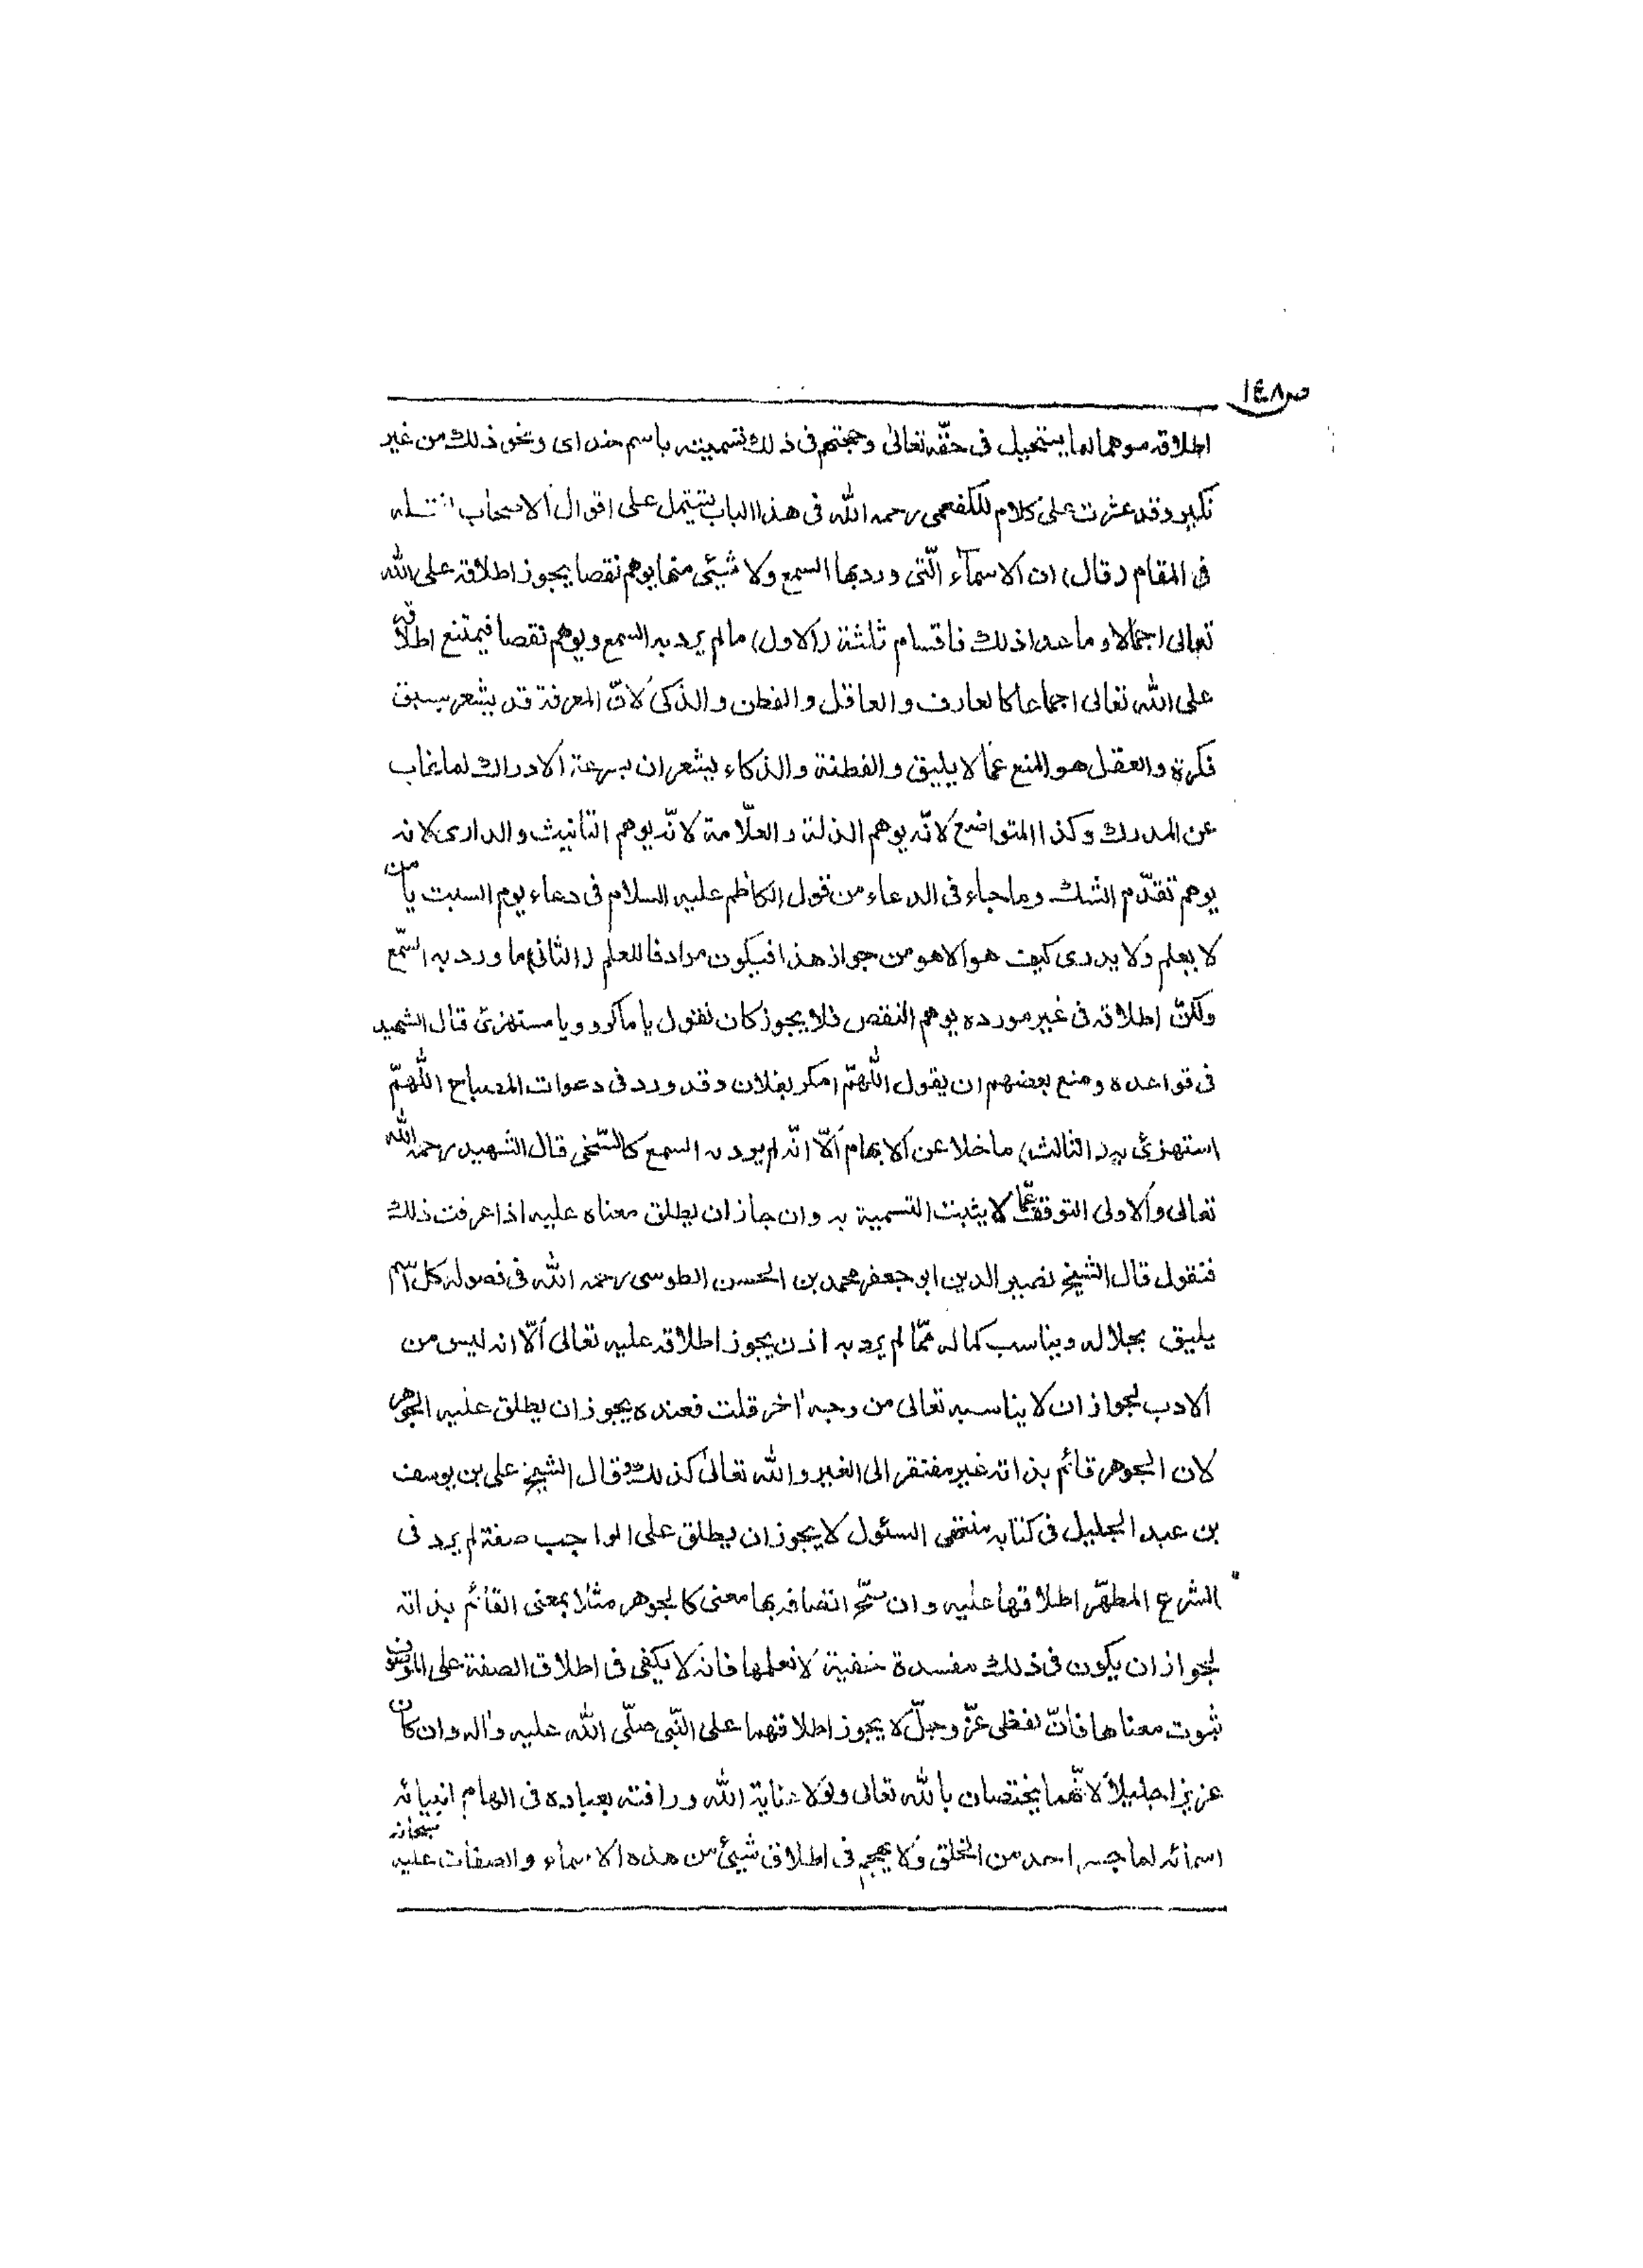 ص١٤٨
اطلاقه موهما لما يستحيل فى حقّه تعالى وحجتهم فى ذلك تسميته باسم خداى ونحو ذلك من غير
نكير وقد عثرت على كلام للكفعمى رحمه الله فى هذا الباب يشتمل على اقوال الاصحاب
فى المقام (قال) ان الاسمآء الّتى ورد بها السمع ولا شيئى منها يوهم نقصا يجوز اطلاقه على الله
تعالى اجمالا و ما عدا ذلك فاقسام ثلثة (الاول) ما لم يرد به السمع ويوهم نقصا فيمتنع اطلاقه
على الله تعالى اجماعا كالعارف و العاقل و الفطن و الذكى لانّ المعرفة قد يشعر بسبق
فكرة والعقل هو المنع عما لا يليق و الفطنة و الذكاء يشعران بسرعة الادراك لما غاب
عن المدرك وكذا المتواضع لانّه يوهم الذلة و العلّامة لانّه يوهم التأنيث و الدارى لانه
يوهم تقدّم الشك وما جاء فى الدعاء من قول الكاظم عليه السلام فى دعاء يوم السبت يا من
لا يعلم ولا يدرى كيف هو الا هو من جواز هذا فيكون مرادفا للعلم (الثانى) ما ورد به السّمع
ولكنّ اطلاقه فى غير مورده يوهم النقص فلا يجوز كان نقول يا ماكر و ويا مستهزئ قال الشهيد
فى قواعده ومنع بعضهم ان يقول اللّهمّ امكر بفلان وقد ورد فى دعوات المصباح اللّهمّ
استهزئ به (الثالث) ما خلا عن الايهام الّا انّه لم يرد به السمع كالسّخى قال الشهيد رحمه الله
تعالى والاولى التوقف عمّا لا يثبت التسمية به وان جاز ان يطلق معناه عليه اذا عرفت ذلك
فنقول قال الشيخ نصير الدين ابو جعفر محمد بن الحسن الطوسى رحمه الله فى فصوله كل اسم
يليق بجلاله ويناسب كماله ممّا لم يرد به اذن يجوز اطلاقه عليه تعالى الّا انه ليس من
الادب لجواز ان لا يناسبه تعالى من وجه اخر قلت فعنده يجوز ان يطلق عليه الجوهر
لان الجوهر قائم بذاته غير مفتقر الى الغير و الله تعالى كذلك وقال الشيخ على بن يوسف
بن عبد الجليل فى كتابه منتهى السئول لا يجوز ان يطلق على الواجب صفة لم يرد فى
الشرع المطهّر اطلاقها عليه و ان صحّ اتصافه بها معنى كالجوهر مثلا بمعنى القائم بذاته
لجواز ان يكون فى ذلك مفسدة خفية لا نعلمها فانه لا يكفى فى اطلاق الصفة على الموصوف
ثبوت معناها فانّ لفظى عزّ وجلّ لا يجوز اطلاقهما على النّبى صلّى الله عليه واله وان كان
عزيزا جليلا لانّهما يختصان بالله تعالى ولولا عناية الله ورافته بعباده فى الهام انبيائه
اسمائه لما جسر احمد من الخلق ولا يهجم فى اطلاق شيئ من هذه الاسماء والصفات عليه سبحانه